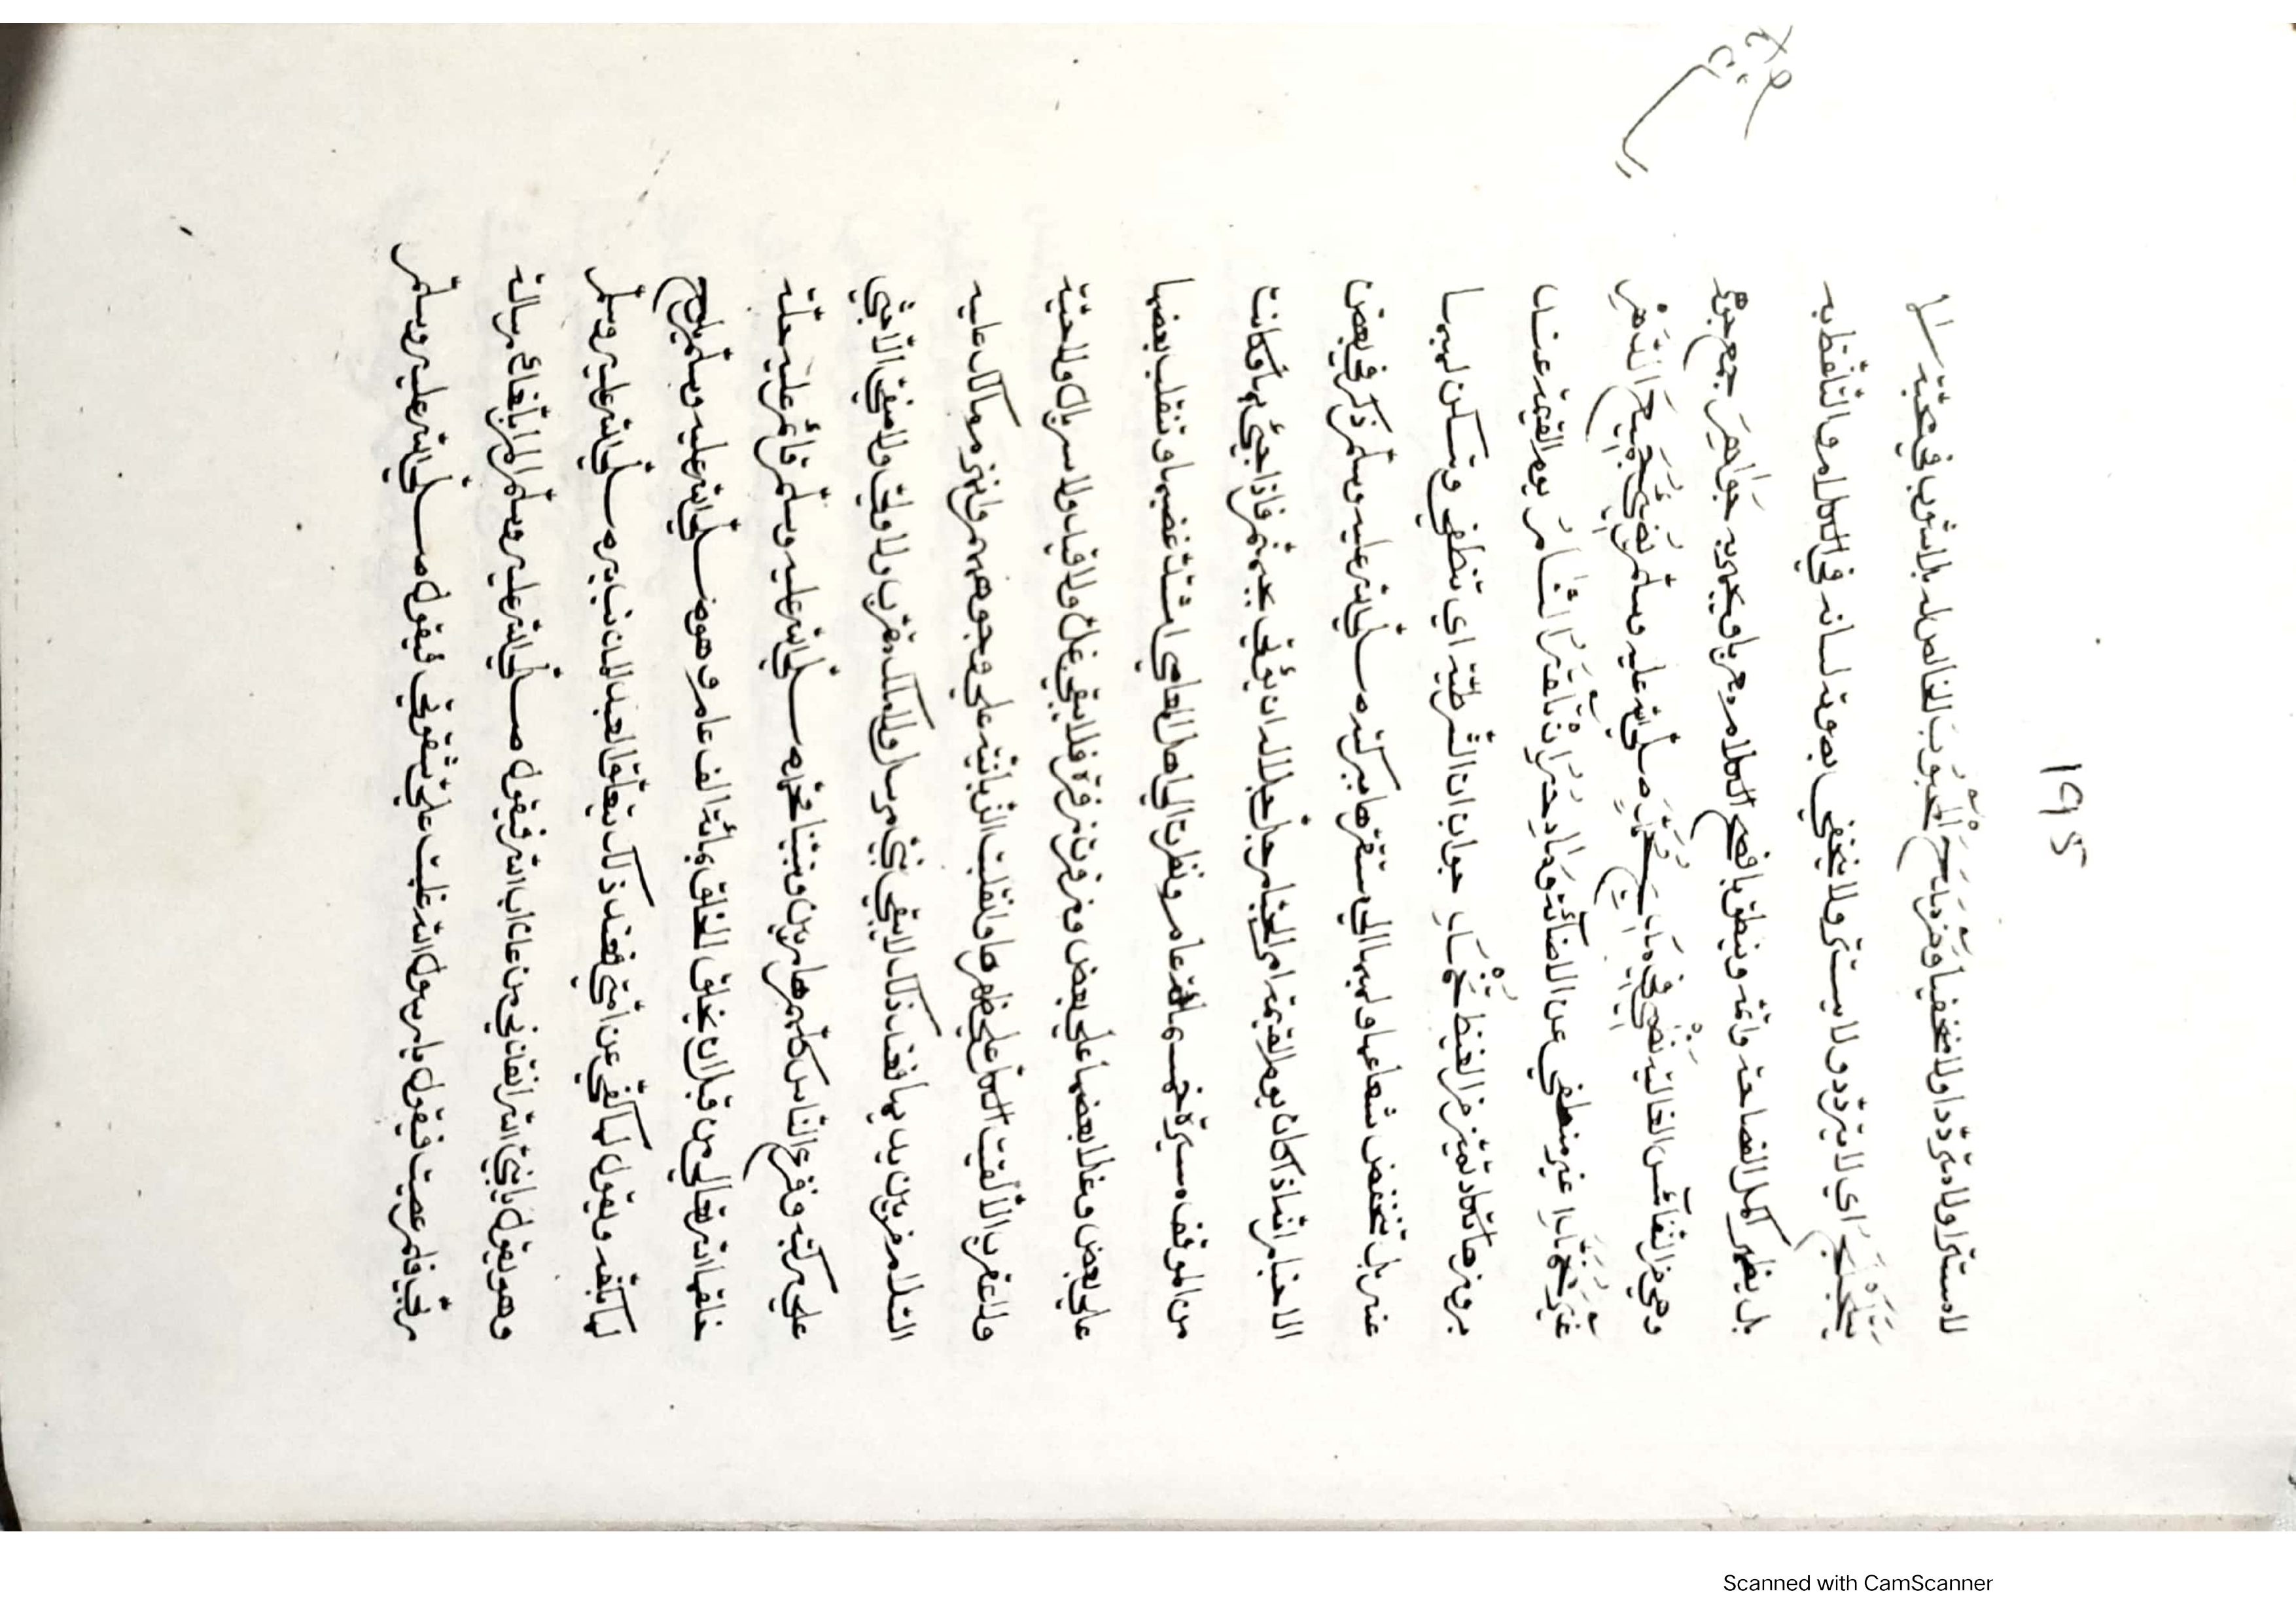 ١٩٥
لا مستترا ولا مترددا ولا مخفيا وَمَنْ مَدَحَ الْمَحْبُوْبَ الخالص له بلا شوب في محبته
يَتَلَجْلَجُ اي لا يتردد ولا يستتر ولا يخفي بصوته لسانه في الكلام والتلفظ به
بل يظهر اكمل الفصاحة واتمه وينطق بافصح الكلام درريا ويجمع به جَوَاهِرَ جمع جوهر
وهي من النفائس الغالية نَضِيْ في مدح مُحَمَّدٍ صلى الله عليه وسلم يُضِيْءُ جَمِيْعَ الدَّهْرِ
غَيْرَ مُخَمَّدٍ اي غير منطفي عن الاضائة وَنَارُ حَرٍّ اِذْ تَلْقَهُ النَّارُ يوم القيمة عند
بروزها تكاد تميز من الغيظ تَخْمَدِ جواب ان الشرطية اي تنطفي وتسكن لهبها
عنه بل تنخفض شعاعها ولهبها الى مستقرها ببركته صلى الله عليه وسلم ذكر في بعض
الاخبار انه اذا كان يوم القيمة امر الجبار جل جلاله ان يؤتى بجهنم فاذا جيئ بها وكانت
من الموقف مسيرة خمسمائة عام ونظرت الى اهل المعاصي اشتد غضبها وتقلب بعضها
على بعض وعلا بعضها على بعض وزفرت زفرة فلا يبقى غل ولا قيد ولا سربال ولا حية
ولا عقرب الا ألقيت الكل على ظهرها وانقلبت الزبانية على وجوههم وانهزم مالك عليه
السلام من بين يديها فعند ذلك لا يبقى نبي مرسل ولا ملك مقرب ولا ولي ولا صفي الا جثي
على ركبته وفزع الناس كلهم هاربين ونبينا محمد صلى الله عليه وسلم قائم عليه حلة
خلقها الله تعالى من قبل ان يخلق الخلق بمائة الف عام وهو صلى الله عليه وسلم يلوح
لها بكفه ويقول لها كفي عن امتي فعند ذلك يتعلق العبد المذنب به صلى الله عليه وسلم
وهو يقول يا نبي الله انقذني من عذاب الله فيقول صلى الله عليه وسلم الم يأتك رسالة
ربي فلم عصيت فيقول يا رسول الله غلبت علي شقوتي فيقول صلى الله عليه وسلم